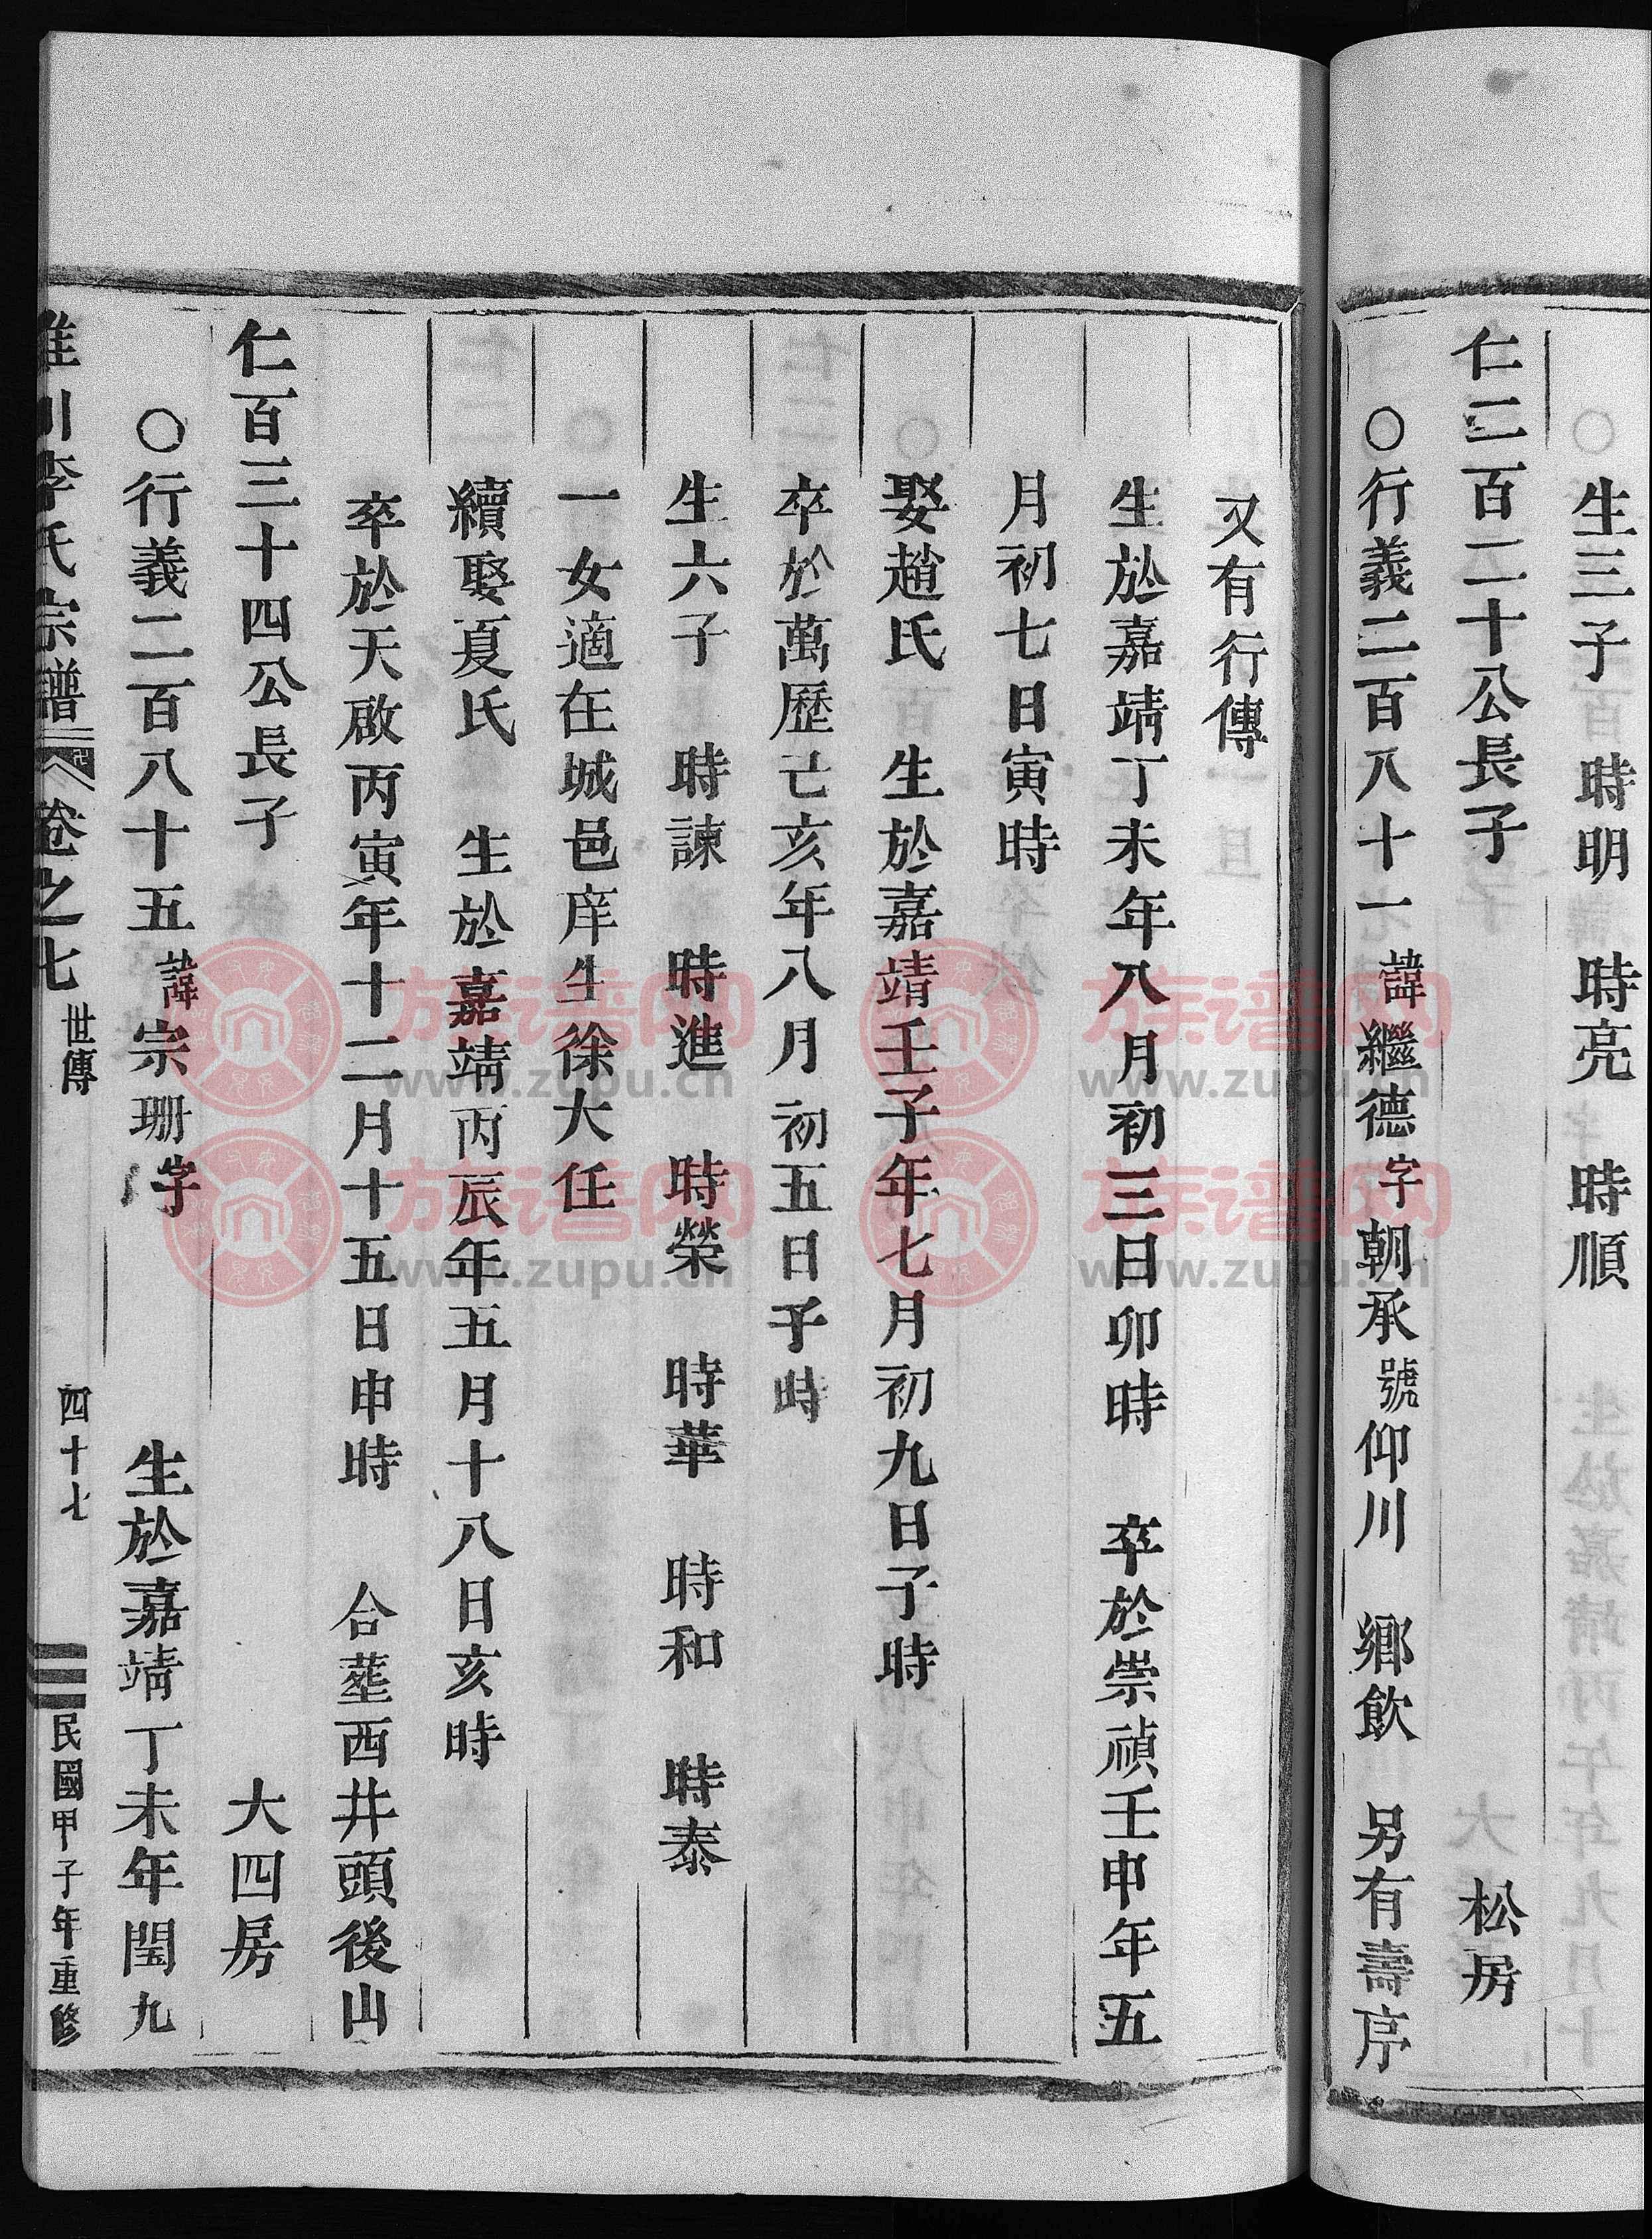 生三子　時明　時亮　時順
仁二百二十公長子　松房
○行義二百八十一諱繼德字朝承號仰川　鄉飲　另有壽序
又有行傳
生於嘉靖丁未年八月初三日卯時　卒於崇禎壬申年五
月初七日寅時
娶趙氏　生於嘉靖壬子年七月初九日子時
卒於萬歷己亥年八月初五日子時
生六子　時諫　時進　時榮　時華　時和　時泰
一女適在城邑庠生徐大任
續娶夏氏　生於嘉靖丙辰年五月十八日亥時
卒於天啟丙寅年十二月十五日申時　合塟西井頭後山
仁百三十四公長子　大四房
○行義二百八十五諱宗珊字　生於嘉靖丁未年閏九
川李氏宗譜　卷之七　世傳　四十七　民國甲子年重修
族谱网
www.zupu.cn
族谱网
www.zupu.cn
族谱网
www.zupu.cn
族谱网
www.zupu.cn